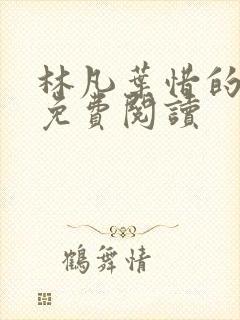 林凡葉惜的
免費閱讀
鶴舞情